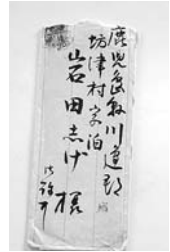 鹿児島県川邊郡
坊津村字泊
岩田志げ様